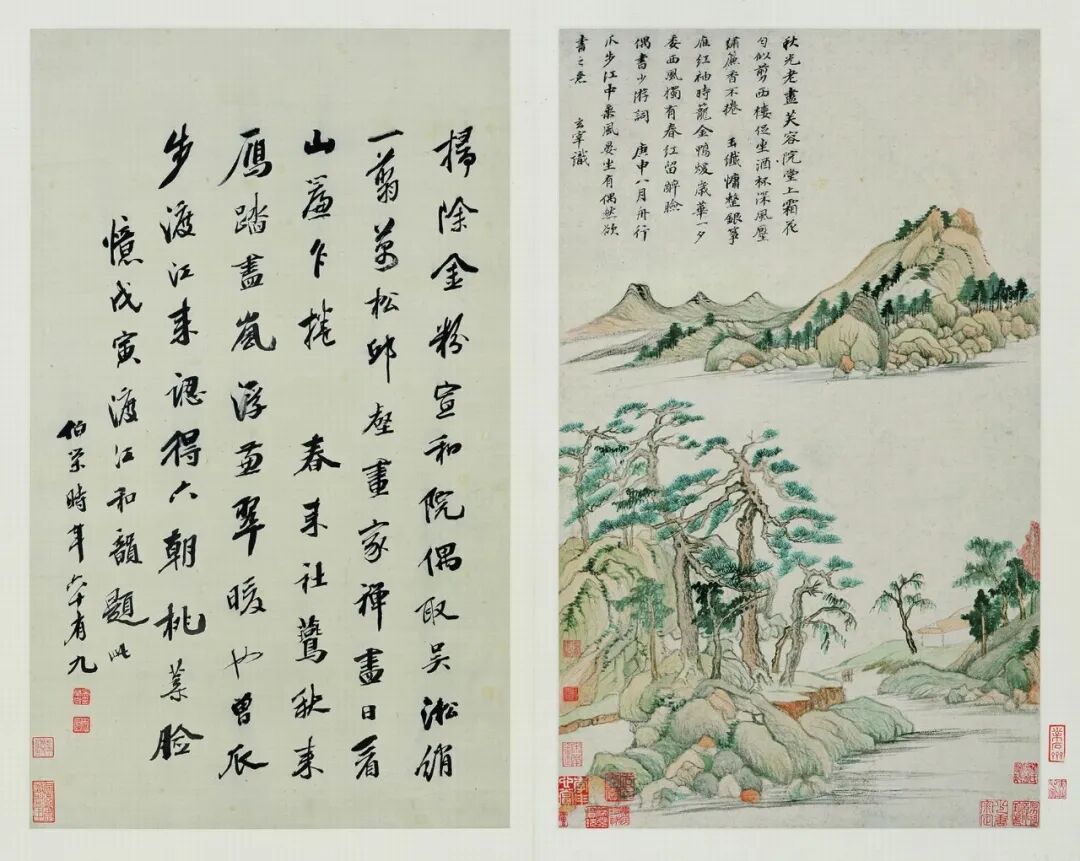 秋光老盡芙容院堂上霜花
勻似剪西樓促坐酒杯深風壓
繡簾香不捲　玉纖慵整銀箏
雁紅袖時籠金鴨煖歲華一夕
委西風獨有春紅留醉臉
偶書少游詞　庚申八月舟行
瓜步江中乘風晏坐有偶然欲
書之意　玄宰識
掃除金粉宣和院偶取吴淞綃
一翦萬松邱壑畫家禪盡日看
山簾乍捲　春來社鷰秋來
鴈踏盡嵐浮兼翠暖也曾瓜
步渡江來認得六朝桃葉臉
憶戊寅渡江和韻題此
伯榮時年六十有九